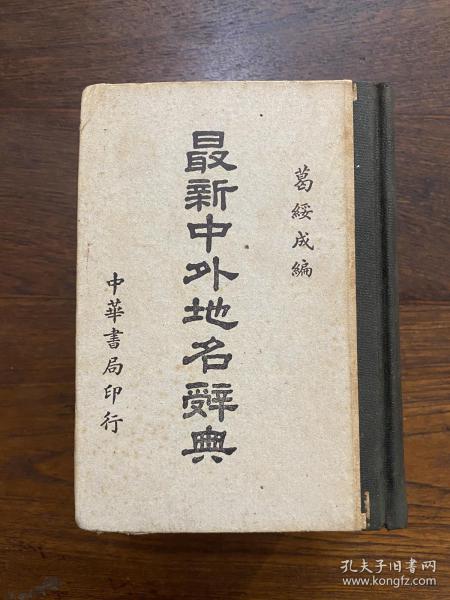 葛綏成編
最新中外地名辭典
中華書局印行
孔夫子旧书网
www.kongfz.com